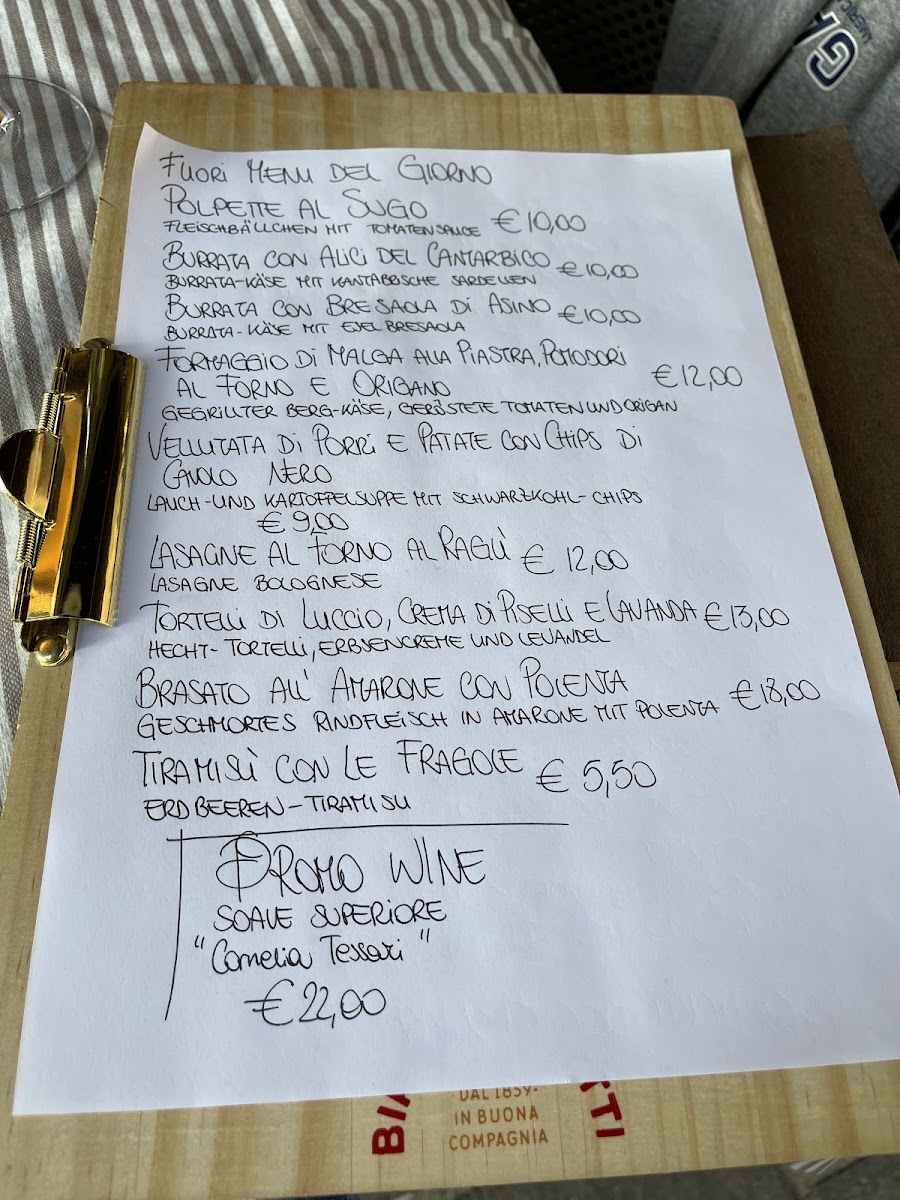 FUORI MENU DEL GIORNO
POLPETTE AL SUGO
FLEISCHBÄLLCHEN MIT TOMATENSAUCE € 10,00
BURRATA CON ALICI DEL CANTARBICO
BURRATA-KÄSE MIT KANTABBSCHE SARDELLEN € 10,00
BURRATA CON BRESAOLA DI ASINO € 10,00
BURRATA-KÄSE MIT ESEL BRESAOLA
FORMAGGIO DI MALGA ALLA PIASTRA, POMODORI
AL FORNO E ORIGANO € 12,00
GEGRILLTER BERG-KÄSE, GERÖSTETE TOMATEN UND ORIGAN
VELLUTATA DI PORRI E PATATE CON CHIPS DI
CAVOLO NERO
LAUCH-UND KARTOFFELSUPPE MIT SCHWARZKOHL-CHIPS
€ 9,00
LASAGNE AL FORNO AL RAGÙ € 12,00
LASAGNE BOLOGNESE
TORTELLI DI LUCCIO, CREMA DI PISELLI E LAVANDA € 13,00
HECHT-TORTELLI, ERBSENCREME UND LEVANDEL
BRASATO ALL' AMARONE CON POLENTA
GESCHMORTES RINDFLEISCH IN AMARONE MIT POLENTA € 18,00
TIRAMISÙ CON LE FRAGOLE € 5,50
ERDBEEREN-TIRAMISU
PROMO WINE
SOAVE SUPERIORE
"Cornelia Tessari"
€ 22,00
DAL 1859
IN BUONA
COMPAGNIA